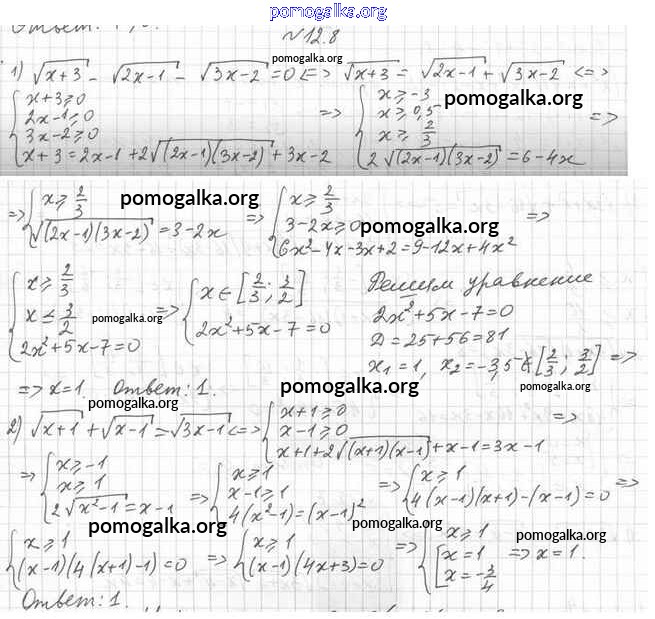 pomogalka.org
Ответ:
№12.8
pomogalka.org
1) √(x+3) - √(2x-1) - √(3x-2) = 0 <=> √(x+3) = √(2x-1) + √(3x-2) <=>
{ x+3≥0
2x-1≥0
3x-2≥0
x+3=2x-1+2√((2x-1)(3x-2))+3x-2 =>
{ x≥-3
x≥0,5
x≥2/3
2√((2x-1)(3x-2))=6-4x =>
pomogalka.org
=> { x≥2/3
√((2x-1)(3x-2))=3-2x
pomogalka.org
=> { x≥2/3
3-2x≥0
6x²-4x-3x+2=9-12x+4x² =>
pomogalka.org
{ x≥2/3
x≤3/2
2x²+5x-7=0
pomogalka.org
=> { x∈[2/3; 3/2]
2x²+5x-7=0
Решим уравнение
2x²+5x-7=0
D=25+56=81
x₁=1, x₂=-3,5∉[2/3; 3/2] =>
pomogalka.org
=> x=1. Ответ: 1.
pomogalka.org
pomogalka.org
2) √(x+1) + √(x-1) = √(3x-1) <=> { x+1≥0
x-1≥0
x+1+2√((x+1)(x-1))+x-1=3x-1 =>
=> { x≥-1
x≥1
2√(x²-1)=x-1
=> { x≥1
x-1≥1
4(x²-1)=(x-1)²
=> { x≥1
4(x-1)(x+1)-(x-1)=0 =>
pomogalka.org
pomogalka.org
pomogalka.org
{ x≥1
(x-1)(4(x+1)-1)=0
=> { x≥1
(x-1)(4x+3)=0
=> { x≥1
[ x=1
x=-3/4
=> x=1.
Ответ: 1.